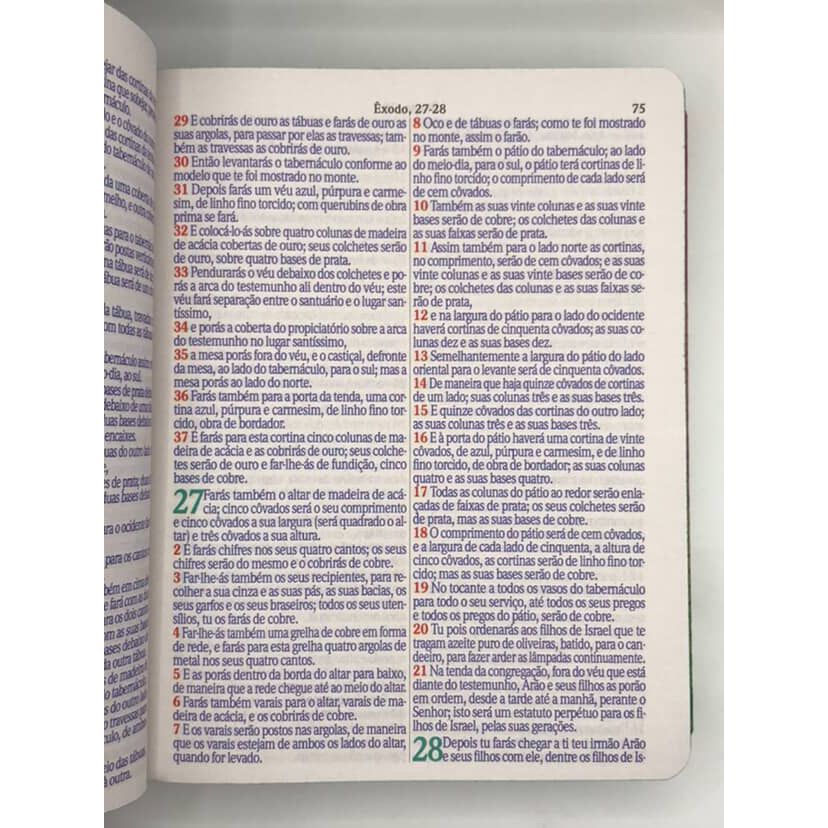 jar das cortinas
Êxodo, 27-28
75
29 E cobrirás de ouro as tábuas e farás de ouro as
suas argolas, para passar por elas as travessas; tam-
bém as travessas as cobrirás de ouro.
30 Então levantarás o tabernáculo conforme ao
modelo que te foi mostrado no monte.
31 Depois farás um véu azul, púrpura e carme-
sim, de linho fino torcido; com querubins de obra
prima se fará.
32 E colocá-lo-ás sobre quatro colunas de madeira
de acácia cobertas de ouro; seus colchetes serão
de ouro, sobre quatro bases de prata.
33 Pendurarás o véu debaixo dos colchetes e po-
rás a arca do testemunho ali dentro do véu; este
véu fará separação entre o santuário e o lugar san-
tíssimo,
34 e porás a coberta do propiciatório sobre a arca
do testemunho no lugar santíssimo,
35 a mesa porás fora do véu, e o castiçal, defronte
da mesa, ao lado do tabernáculo, para o sul; mas a
mesa porás ao lado do norte.
36 Farás também para a porta da tenda, uma cor-
tina azul, púrpura e carmesim, de linho fino tor-
cido, obra de bordador.
37 E farás para esta cortina cinco colunas de ma-
deira de acácia e as cobrirás de ouro; seus colche-
tes serão de ouro e far-lhe-ás de fundição, cinco
bases de cobre.
27 Farás também o altar de madeira de acá-
cia; cinco côvados será o seu comprimento
e cinco côvados a sua largura (será quadrado o al-
tar) e três côvados a sua altura.
2 E farás chifres nos seus quatro cantos; os seus
chifres serão do mesmo e o cobrirás de cobre.
3 Far-lhe-ás também os seus recipientes, para re-
colher a sua cinza e as suas pás, as suas bacias, os
seus garfos e os seus braseiros; todos os seus uten-
sílios, tu os farás de cobre.
4 Far-lhe-ás também uma grelha de cobre em forma
de rede, e farás para esta grelha quatro argolas de
metal nos seus quatro cantos.
5 E as porás dentro da borda do altar para baixo,
de maneira que a rede chegue até ao meio do altar.
6 Farás também varais para o altar, varais de ma-
deira de acácia, e os cobrirás de cobre.
7 E os varais serão postos nas argolas, de maneira
que os varais estejam de ambos os lados do altar,
quando for levado.
8 Oco e de tábuas o farás; como te foi mostrado
no monte, assim o farão.
9 Farás também o pátio do tabernáculo; ao lado
do meio-dia, para o sul, o pátio terá cortinas de li-
nho fino torcido; o comprimento de cada lado será
de cem côvados.
10 Também as suas vinte colunas e as suas vinte
bases serão de cobre; os colchetes das colunas e
as suas faixas serão de prata.
11 Assim também para o lado norte as cortinas,
no comprimento, serão de cem côvados; e as suas
vinte colunas e as suas vinte bases serão de co-
bre; os colchetes das colunas e as suas faixas se-
rão de prata,
12 e na largura do pátio para o lado do ocidente
haverá cortinas de cinquenta côvados; as suas co-
lunas dez e as suas bases dez.
13 Semelhantemente a largura do pátio do lado
oriental para o levante será de cinquenta côvados.
14 De maneira que haja quinze côvados de cortinas
de um lado; suas colunas três e as suas bases três.
15 E quinze côvados das cortinas do outro lado;
as suas colunas três e as suas bases três.
16 E à porta do pátio haverá uma cortina de vinte
côvados, de azul, púrpura e carmesim, e de linho
fino torcido, de obra de bordador; as suas colunas
quatro e as suas bases quatro.
17 Todas as colunas do pátio ao redor serão enla-
çadas de faixas de prata; os seus colchetes serão
de prata, mas as suas bases de cobre.
18 O comprimento do pátio será de cem côvados,
e a largura de cada lado de cinquenta, a altura de
cinco côvados, as cortinas serão de linho fino tor-
cido; mas as suas bases serão de cobre.
19 No tocante a todos os vasos do tabernáculo
para todo o seu serviço, até todos os seus pregos
e todos os pregos do pátio, serão de cobre.
20 Tu pois ordenarás aos filhos de Israel que te
tragam azeite puro de oliveiras, batido, para o can-
deeiro, para fazer arder as lâmpadas continuamente.
21 Na tenda da congregação, fora do véu que está
diante do testemunho, Arão e seus filhos as porão
em ordem, desde a tarde até a manhã, perante o
Senhor; isto será um estatuto perpétuo para os fi-
lhos de Israel, pelas suas gerações.
28 Depois tu farás chegar a ti teu irmão Arão
e seus filhos com ele, dentre os filhos de Is-